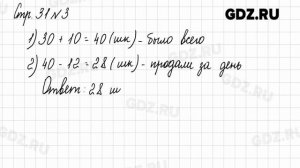 Стр. 31 №3
GDZ.RU
1) 30 + 10 = 40 (шк) - было всего
2) 40 - 12 = 28 (шк) - продали за день
Ответ: 28 ш
GDZ.RU
GDZ.RU